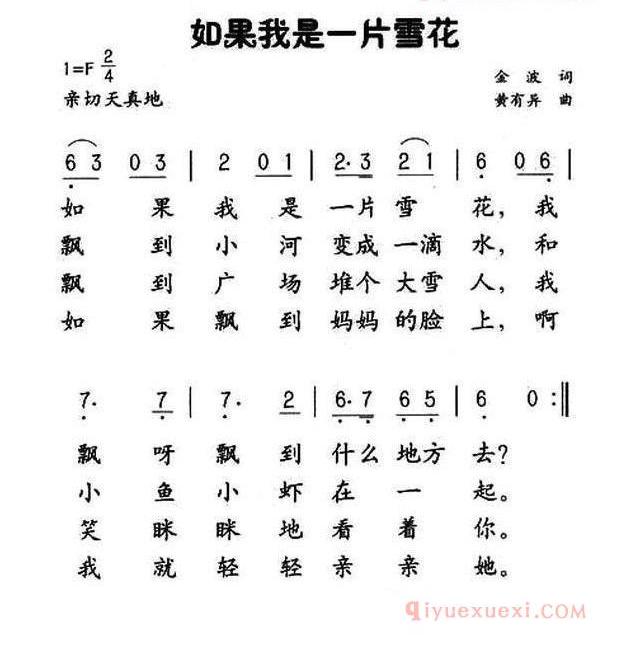 如果我是一片雪花
1=F 2/4
金波 词
亲切天真地
黄有异 曲
6 3 0 3 | 2 0 1 | 2·3 2 1 | 6 0 6 |
如果我是一片雪花，我
飘到小河变成一滴水，和
飘到广场堆个大雪人，我
如果飘到妈妈的脸上，啊
7· 7 | 7· 2 | 6·7 6 5 | 6 0 :||
飘呀飘到什么地方去？
小鱼小虾在一起。
笑眯眯地看着你。
我就轻轻亲亲她。
qiyuexuexi.com